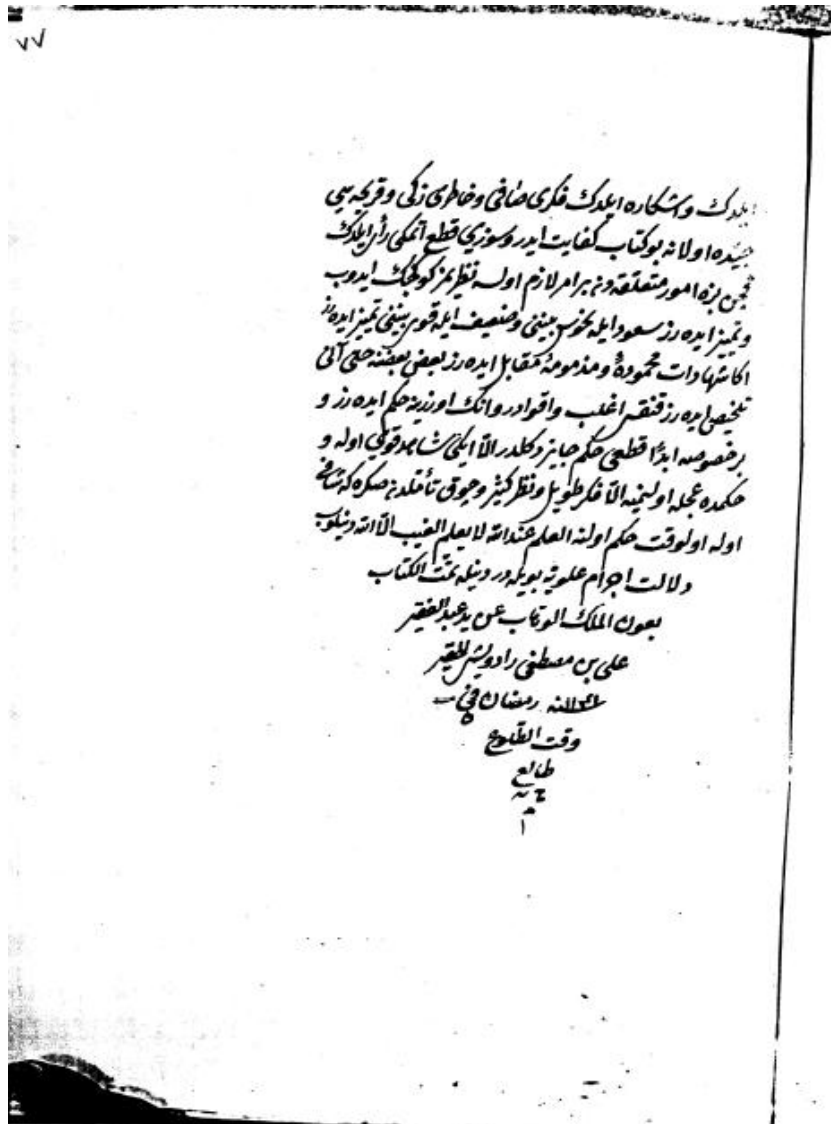 ٧٧
ايلدك واشكاره ايلدك فكرى صافى وخاطرى زكى وقريحه سى
جيده اولانه بو كتاب كفايت ايدر وسوزى قطع اتمكى رأى ايلدك
بزه امور متعلقه دن بر امر لازم اولسه نظر ايدوب
وتمييز ايده رز سعود ايله نحوس بيننى وضعيف ايله قوى بيننى تمييز ايده رز
اكا شهادات محموده و مذمومه مقابل ايده رز بعضى بعضنه حتى آنى
تلخيص ايده رز قنقسى اغلب واقوادر وانك اوزرينه حكم ايده رز و
بر خصوصه ابدًا قطعى حكم جايز دكلدر الّا ايكى شاهد قوى اوله و
حكمده عجله اولنميه الّا فكر طويل ونظر كثير وچوق تأملدن صكره كه
اوله اولوقت حكم اولنه العلم عند الله لا يعلم الغيب الّا الله دنيلوب
دلالت اجرام علويه بويله در دنيله تمّت الكتاب
بعون الملك الوهاب عن يد عبد الفقير
على بن مصطفى الحقير
رمضان فى
وقت الطلوع
طالع